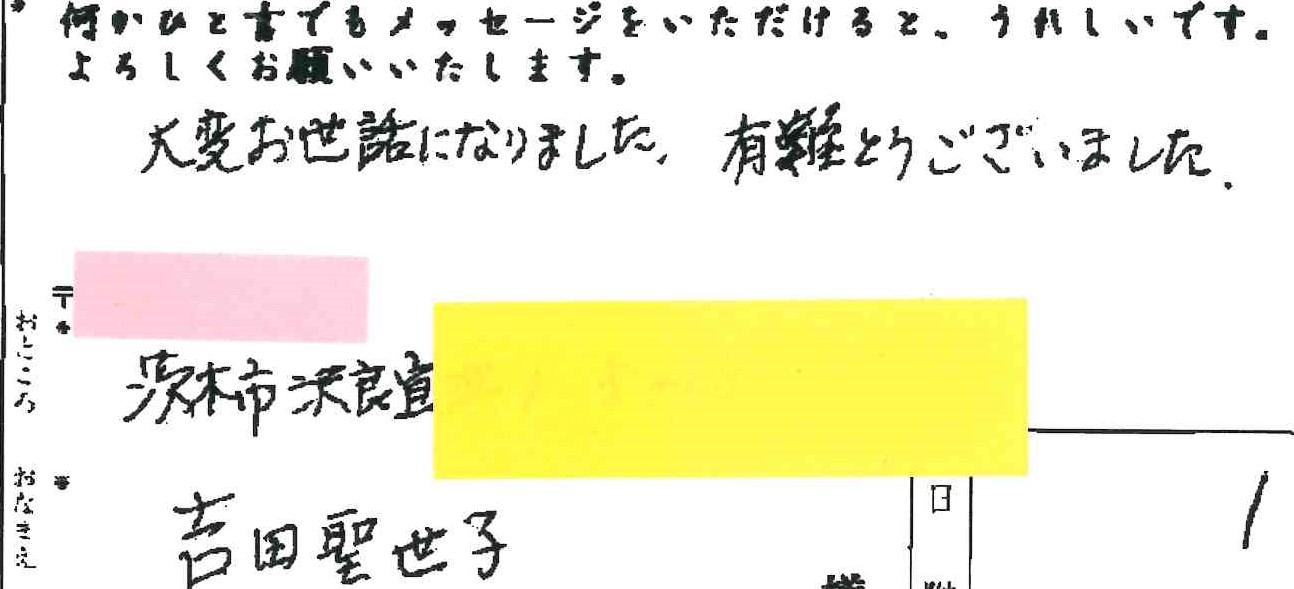 何かひと言でもメッセージをいただけると、うれしいです。
よろしくお願いいたします。
大変お世話になりました、有難とうございました.
〒
おところ
茨木市沢良宜
おなまえ
吉田聖世子
様
日
1